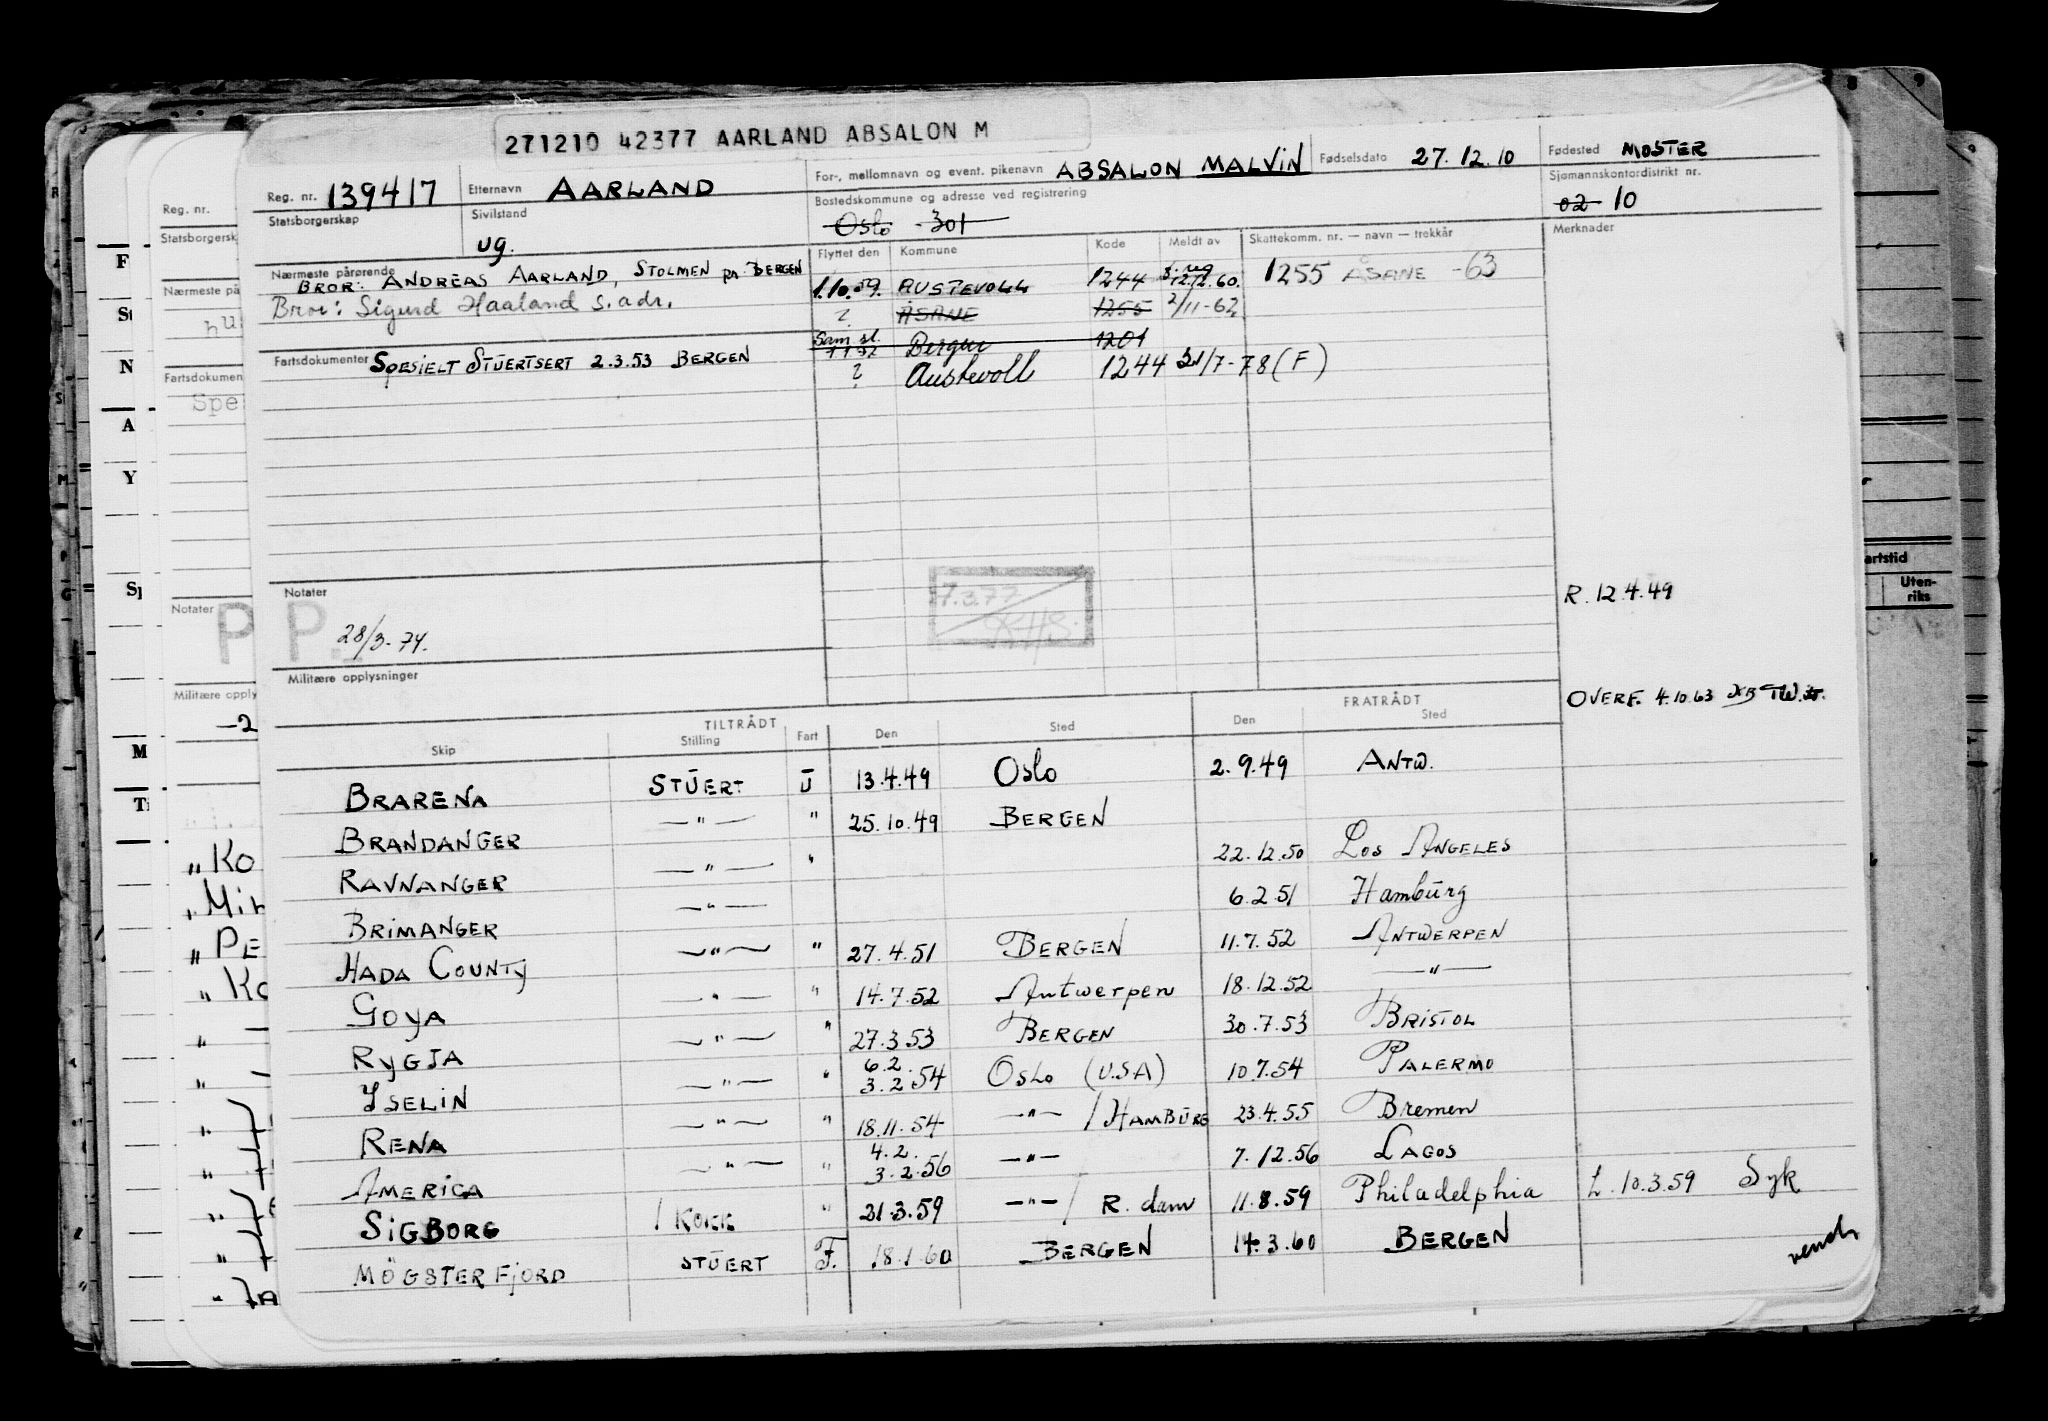 271210 42377 AARLAND ABSALON M
Reg. nr. 139417 Etternavn AARLAND For-, mellomnavn og event. pikenavn ABSALON MALVIN Fødselsdato 27.12.10 Fødested MOSTER
Statsborgerskap Sivilstand ug. Bostedskommune og adresse ved registrering Oslo 301 Sjømannskontordistrikt nr. 02 10
Flyttet den Kommune Kode Meldt av Skattekomm. nr. — navn — trekkår Merknader
Nærmeste pårørende
BROR: ANDREAS AARLAND, STOLMEN pr. BERGEN 1.10.59. AUSTEVOLL 1244 12/2.60. 1255 ÅSANE -63
Bror: Sigurd Haaland s. adr. ? ÅSANE 1255 2/11-62
Sam.sl. 1 1 72 Bergen 1201
Fartsdokumenter SPESIELT STUERTSERT 2.3.53 BERGEN ? Austevoll 1244 21/7-78 (F)
7.3.77
R. 12.4.49
Notater
P 28/3-74.
Militære opplysninger
OVERF. 4.10.63
TILTRÅDT FRATRÅDT
Skip Stilling Fart Den Sted Den Sted
BRARENA STUERT U 13.4.49 Oslo 2.9.49 ANTW.
BRANDANGER —"— " 25.10.49 BERGEN
RAVNANGER —"— " 22.12.50 LOS ANGELES
BRIMANGER —"— 6.2.51 Hamburg
HADA COUNTY —"— " 27.4.51 BERGEN 11.7.52 ANTWERPEN
GOYA —"— " 14.7.52 Antwerpen 18.12.52 —"—
RYGJA —"— " 27.3.53 BERGEN 30.7.53 BRISTOL
ISELIN —"— " 6.2. 3.2.54 OSLO (USA) 10.7.54 PALERMO
RENA —"— " 18.11.54 —"— / HAMBURG 23.4.55 Bremen
AMERICA —"— " 4.2. 3.2.56 —"— 7.12.56 LAGOS
SIGBORG / KOKK " 21.3.59 —"— / R.dam 11.8.59 Philadelphia L. 10.3.59 Syk
MÖGSTERFJORD STUERT F. 18.1.60 BERGEN 14.3.60 BERGEN
vend
Reg. nr.
Statsborgersk
Nærmeste på
Fartsdokumen
Spe
Notater
P
Militære opply
-2
F
St
N
A
Y
M
artstid
Uten-
riks